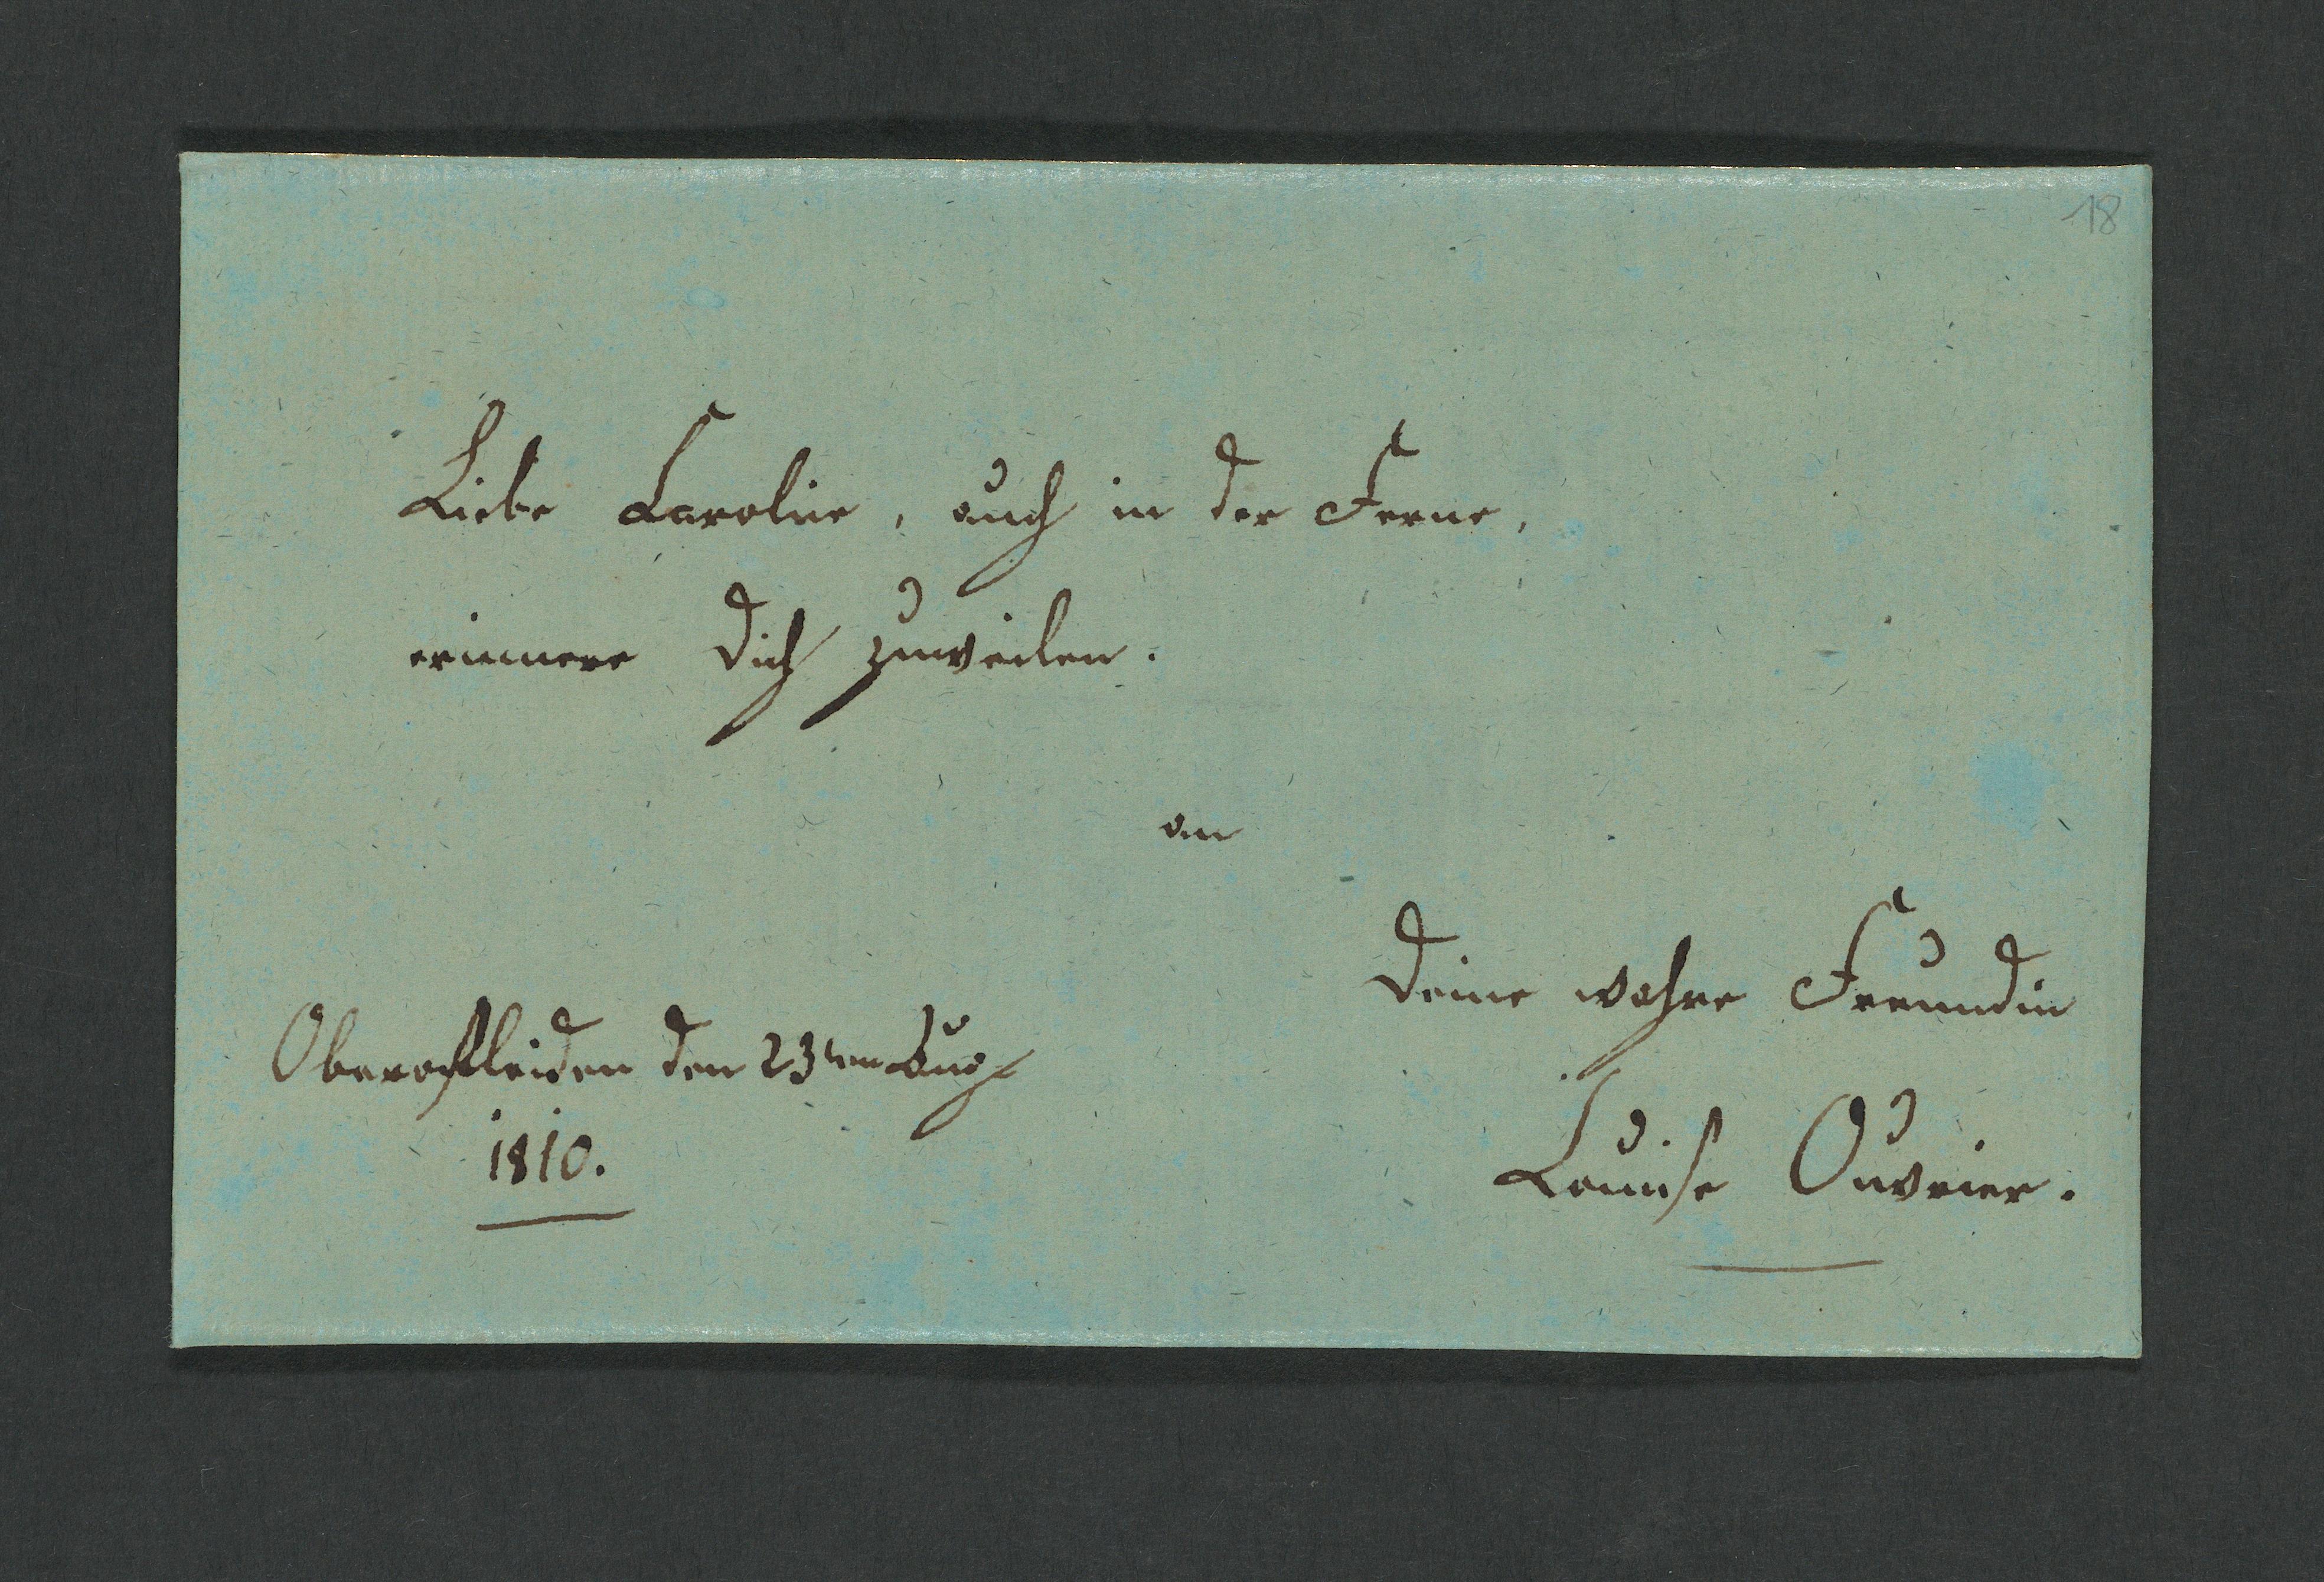 18
Liebe Caroline, auch in der Ferne,
erinnere dich zuweilen.
an
deine wahre Freundin
Oberofleiden den 23ten Aug
1810.
Louise Ouvrier.